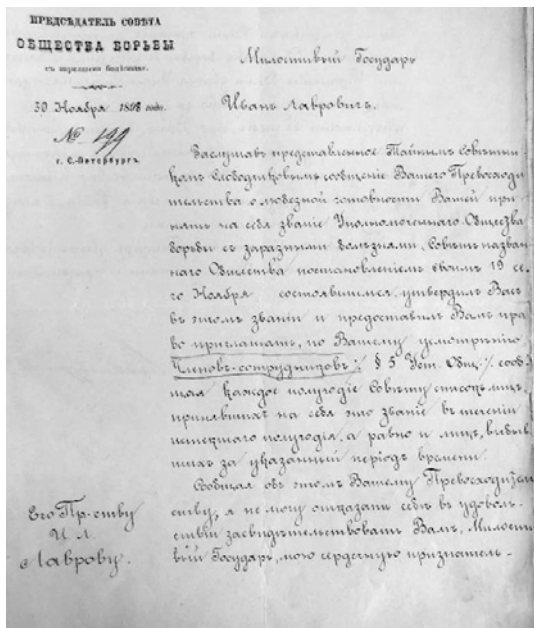 ПРЕДСѢДАТЕЛЬ СОВѢТА
ОБЩЕСТВА БОРЬБЫ
съ заразными болѣзнями.
30 Ноября 1898 года.
№ 199
г. С.-Петербургъ.
Милостивый Государь
Иванъ Лавровичъ.
Заслушавъ представленное Тайнымъ Совѣтни
комъ Слободчиковымъ сообщеніе Вашего Превосходи
тельства о любезной готовности Вашей при-
нять на себя званіе Уполномоченнаго Общества
борьбы съ заразными болѣзнями, Совѣтъ назван-
наго Общества постановленіемъ своимъ 19 се-
го Ноября состоявшимся, утвердилъ Васъ
въ этомъ званіи и предоставилъ Вамъ пра
во приглашать, по Вашему усмотрѣнію
Членовъ-сотрудниковъ /: § 5 Уст. Общ. :/ сооб
щая каждое полугодіе Совѣту списокъ лицъ,
принявшихъ на себя это званіе въ теченіи
истекшаго полугодія, а равно и лицъ, выбыв
шихъ за указанный періодъ времени.
Сообщая объ этомъ Вашему Превосходитель
ству, я не могу отказать себѣ въ удоволь-
ствіи засвидѣтельствовать Вамъ, Милости
вый Государь, мою сердечную признатель-
Его Пр-ству
И. Л.
Лаврову.